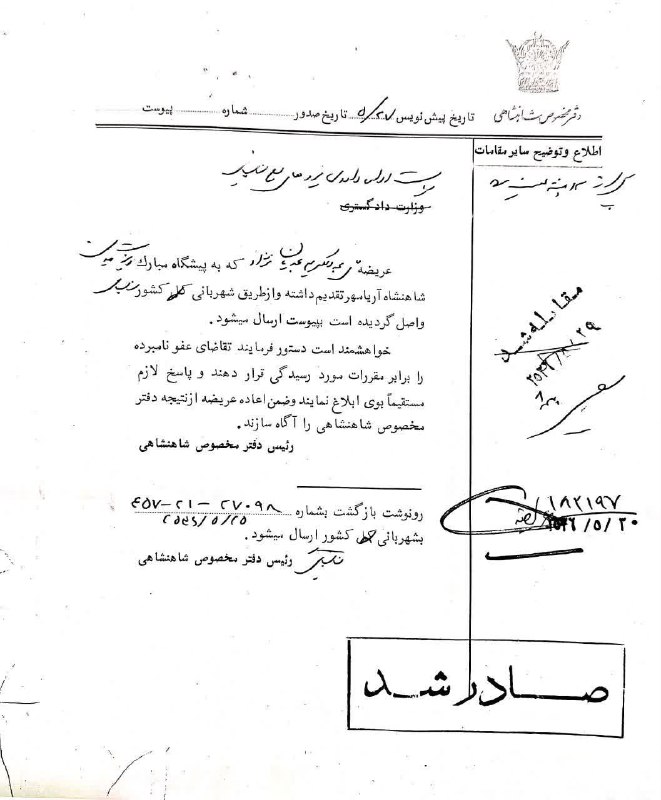 دفتر مخصوص شاهنشاهی
تاریخ پیش نویس ۵/۲۷ تاریخ صدور شماره پیوست
اطلاع و توضیح سایر مقامات
وزارت دادگستری
عریضه‌ی نژاد که به پیشگاه مبارک
شاهنشاه آریامهر تقدیم داشته و از طریق شهربانی کل کشور
واصل گردیده است بپیوست ارسال میشود.
خواهشمند است دستور فرمایند تقاضای عفو نامبرده
را برابر مقررات مورد رسیدگی قرار دهند و پاسخ لازم
مستقیماً بوی ابلاغ نمایند و ضمن اعاده عریضه از نتیجه دفتر
مخصوص شاهنشاهی را آگاه سازند.
رئیس دفتر مخصوص شاهنشاهی
مقابله شد
رونوشت بازگشت بشماره ۲۷۰۹۸ – ۲۱ – ۴۵۷
۲۵۳۶/۵/۲۵
بشهربانی کل کشور ارسال میشود.
رئیس دفتر مخصوص شاهنشاهی
۱۸۲۱۹۷
۲۵۳۶/۵/۲۰
صادر شد